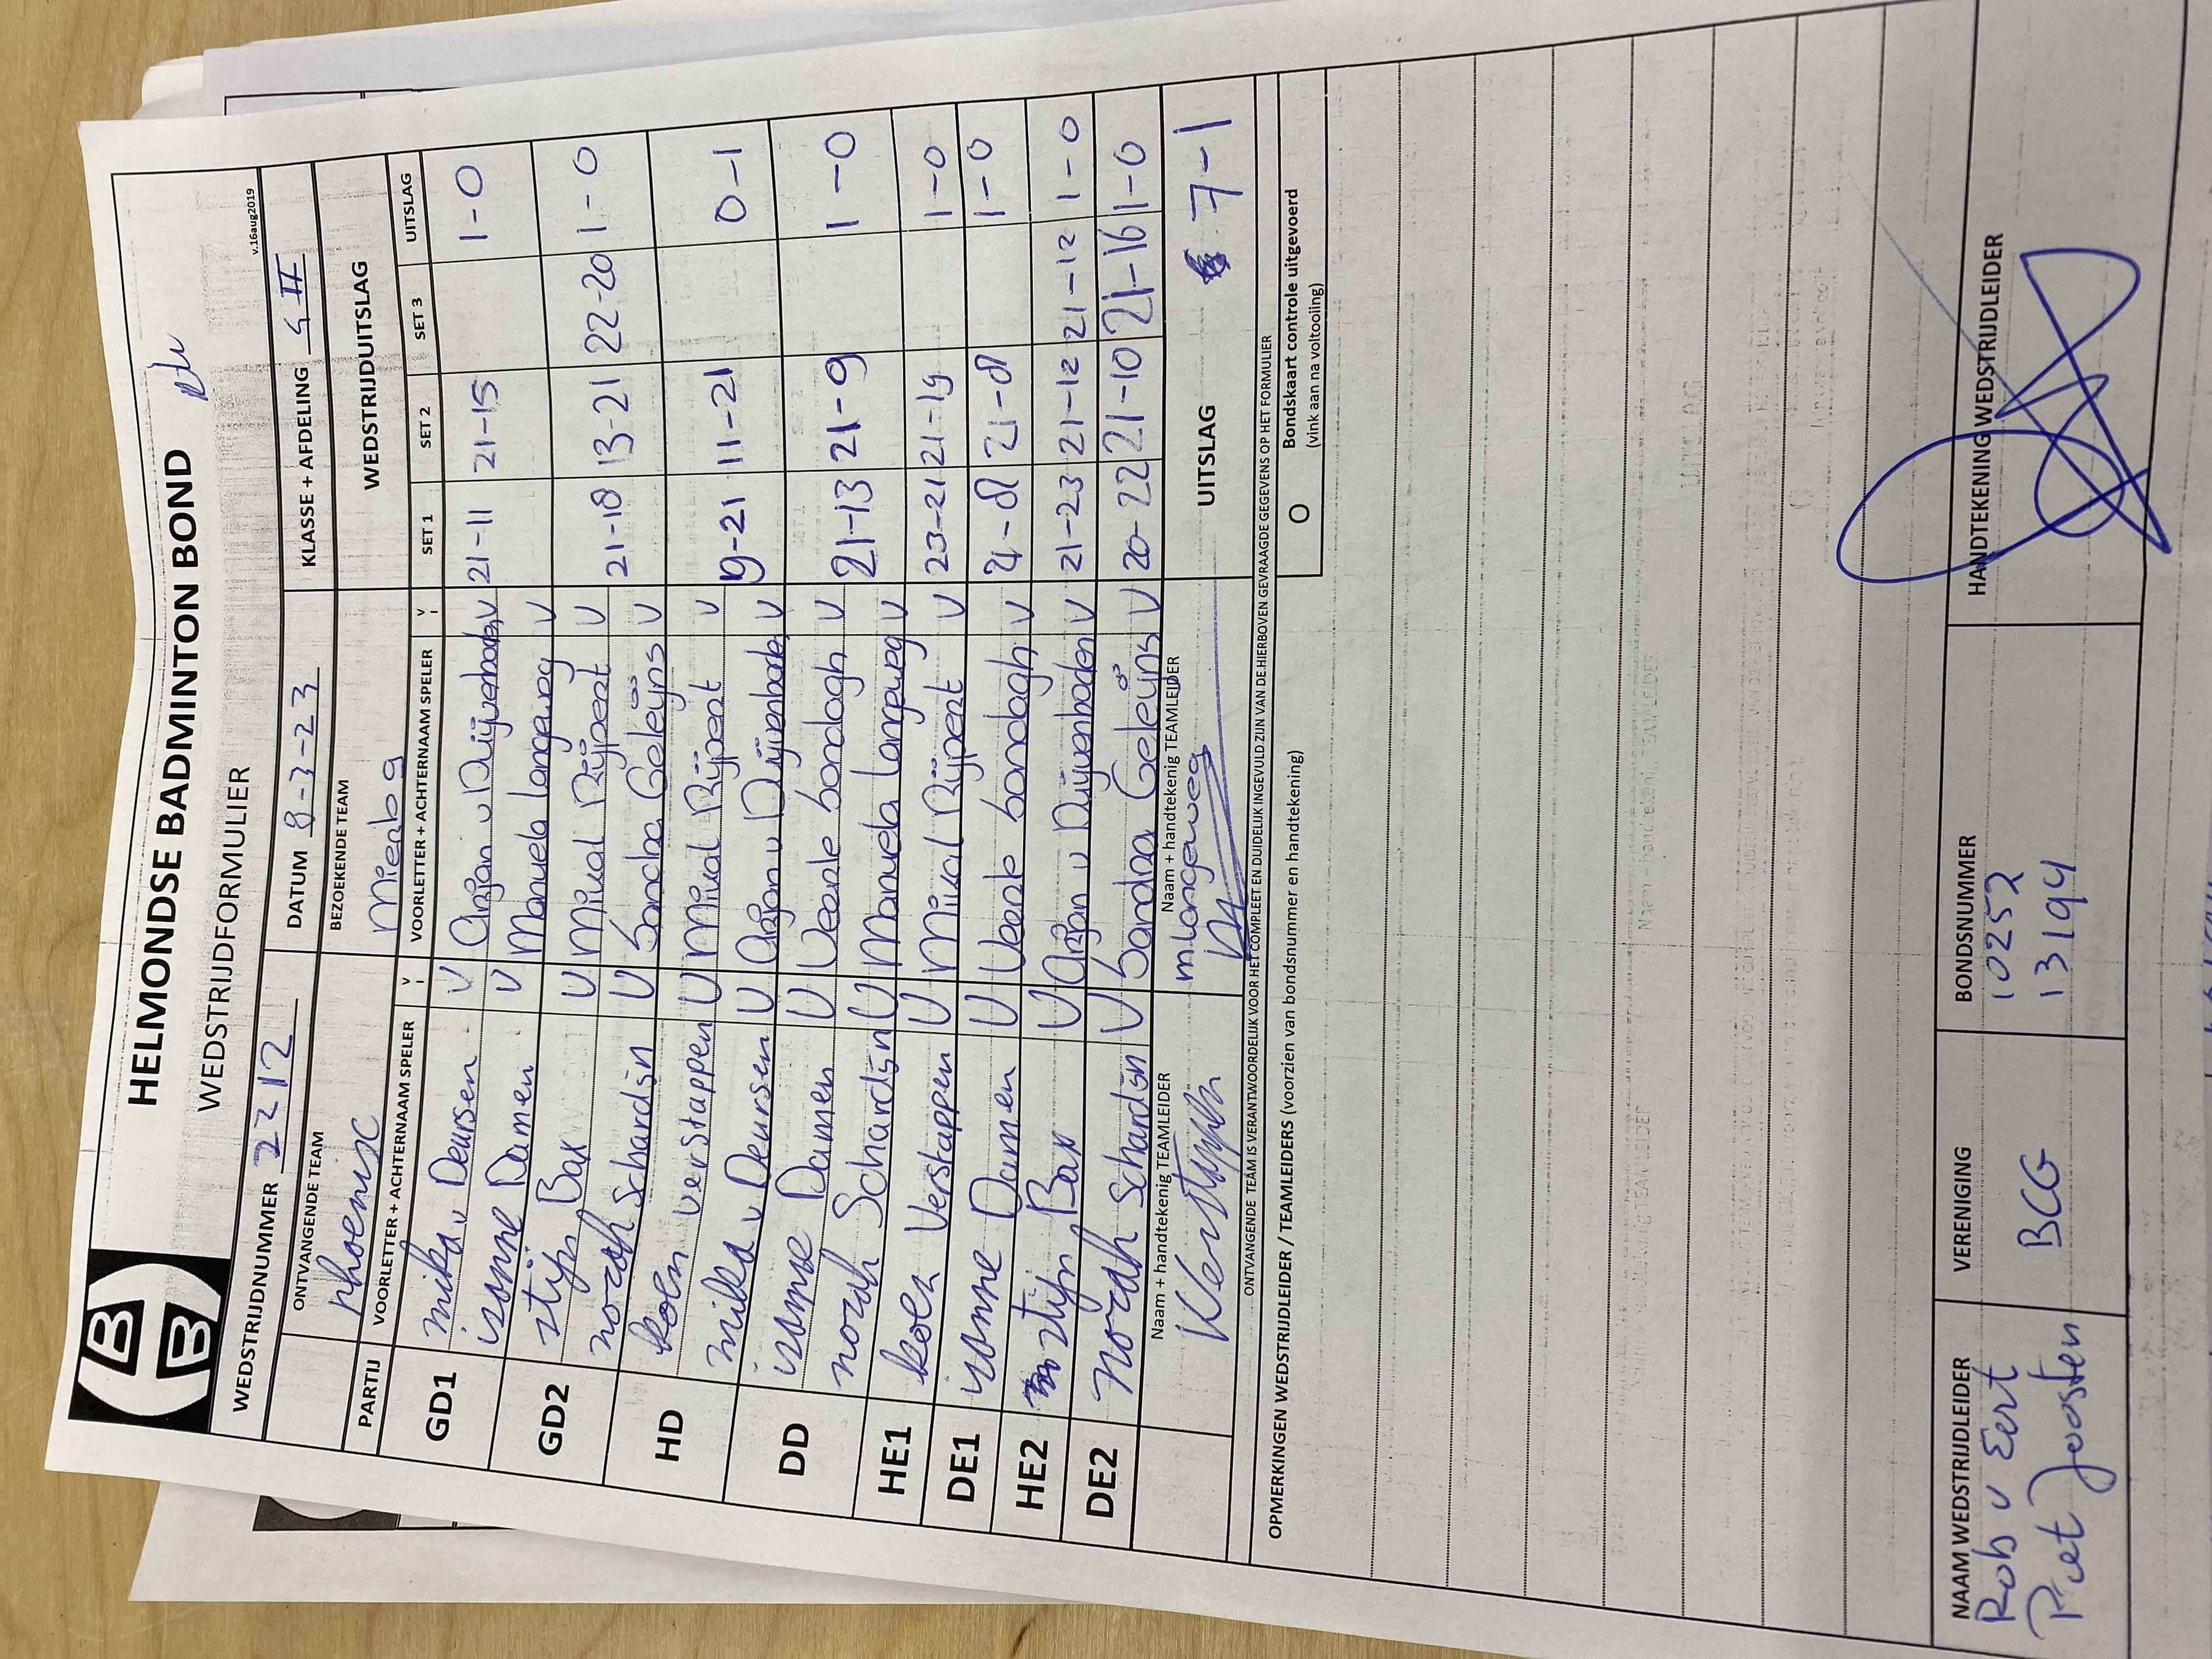 HELMONDSE BADMINTON BOND
WEDSTRIJDFORMULIER
v.16aug2019
WEDSTRIJDNUMMER 2212 DATUM 8-3-23 KLASSE + AFDELING 4 II
ONTVANGENDE TEAM BEZOEKENDE TEAM WEDSTRIJDUITSLAG
phoenix Mierlo 9
PARTIJ VOORLETTER + ACHTERNAAM SPELER V VOORLETTER + ACHTERNAAM SPELER V SET 1 SET 2 SET 3 UITSLAG
GD1 mika v Deursen V Arjan v Duijvenboden V 21-11 21-15 1-0
isanne Damen V Manuela Langeweg V
GD2 stijn Bax V Mikal Rijpert V 21-18 13-21 22-20 1-0
norah Schardijn V Sandra Geleijns V
HD koen Verstappen V Mikal Rijpert V 9-21 11-21 0-1
mika v Deursen V Arjan v Duijvenboden V
DD isanne Damen V Veerle Bondagh V 21-13 21-9 1-0
norah Schardijn V Manuela Langeweg V
HE1 koen Verstappen V Mikal Rijpert V 23-21 21-19 1-0
DE1 isanne Damen V Veerle Bondagh V 21-8 21-8 1-0
HE2 stijn Bax V Arjan v Duijvenboden V 21-23 21-12 21-12 1-0
DE2 norah Schardijn V Sandra Geleijns V 20-22 21-10 21-16 1-0
Naam + handtekenig TEAMLEIDER Naam + handtekenig TEAMLEIDER UITSLAG 7-1
KVerstappen m.langeweg
ONTVANGENDE TEAM IS VERANTWOORDELIJK VOOR HET COMPLEET EN DUIDELIJK INGEVULD ZIJN VAN DE HIERBOVEN GEVRAAGDE GEGEVENS OP HET FORMULIER
OPMERKINGEN WEDSTRIJDLEIDER / TEAMLEIDERS (voorzien van bondsnummer en handtekening) O Bondskaart controle uitgevoerd
(vink aan na voltooiing)
NAAM WEDSTRIJDLEIDER VERENIGING BONDSNUMMER HANDTEKENING WEDSTRIJDLEIDER
Rob v Eert 10252
Piet Joosten BCG 13194